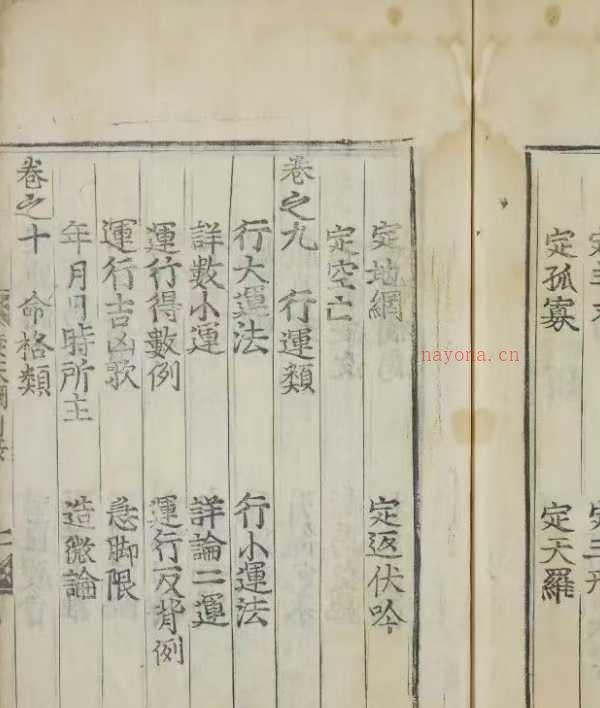 定孤寡 定天羅
定地網 定返伏吟
定空亡
卷之九 行運類
行大運法 行小運法
詳數小運 詳論二運
運行得數例 運行反背例
運行吉凶歌 急脚限
年月日時所主 造微論
卷之十 命格類
nayona.cn